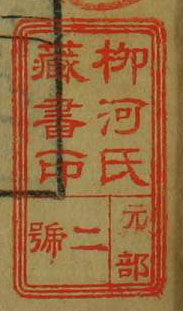 柳河氏
藏書印
元部
二號